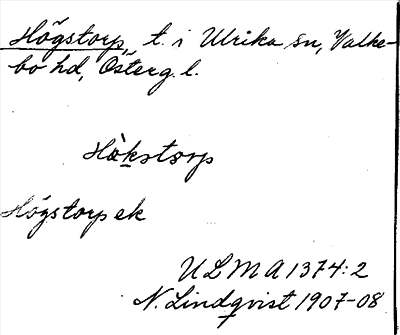 Högstorp, t. i Ulrika sn, Valke-
bo hd, Österg. l.
Hökstorp
Högstorps ek
ULMA 1374:2
N. Lindqvist 1907-08